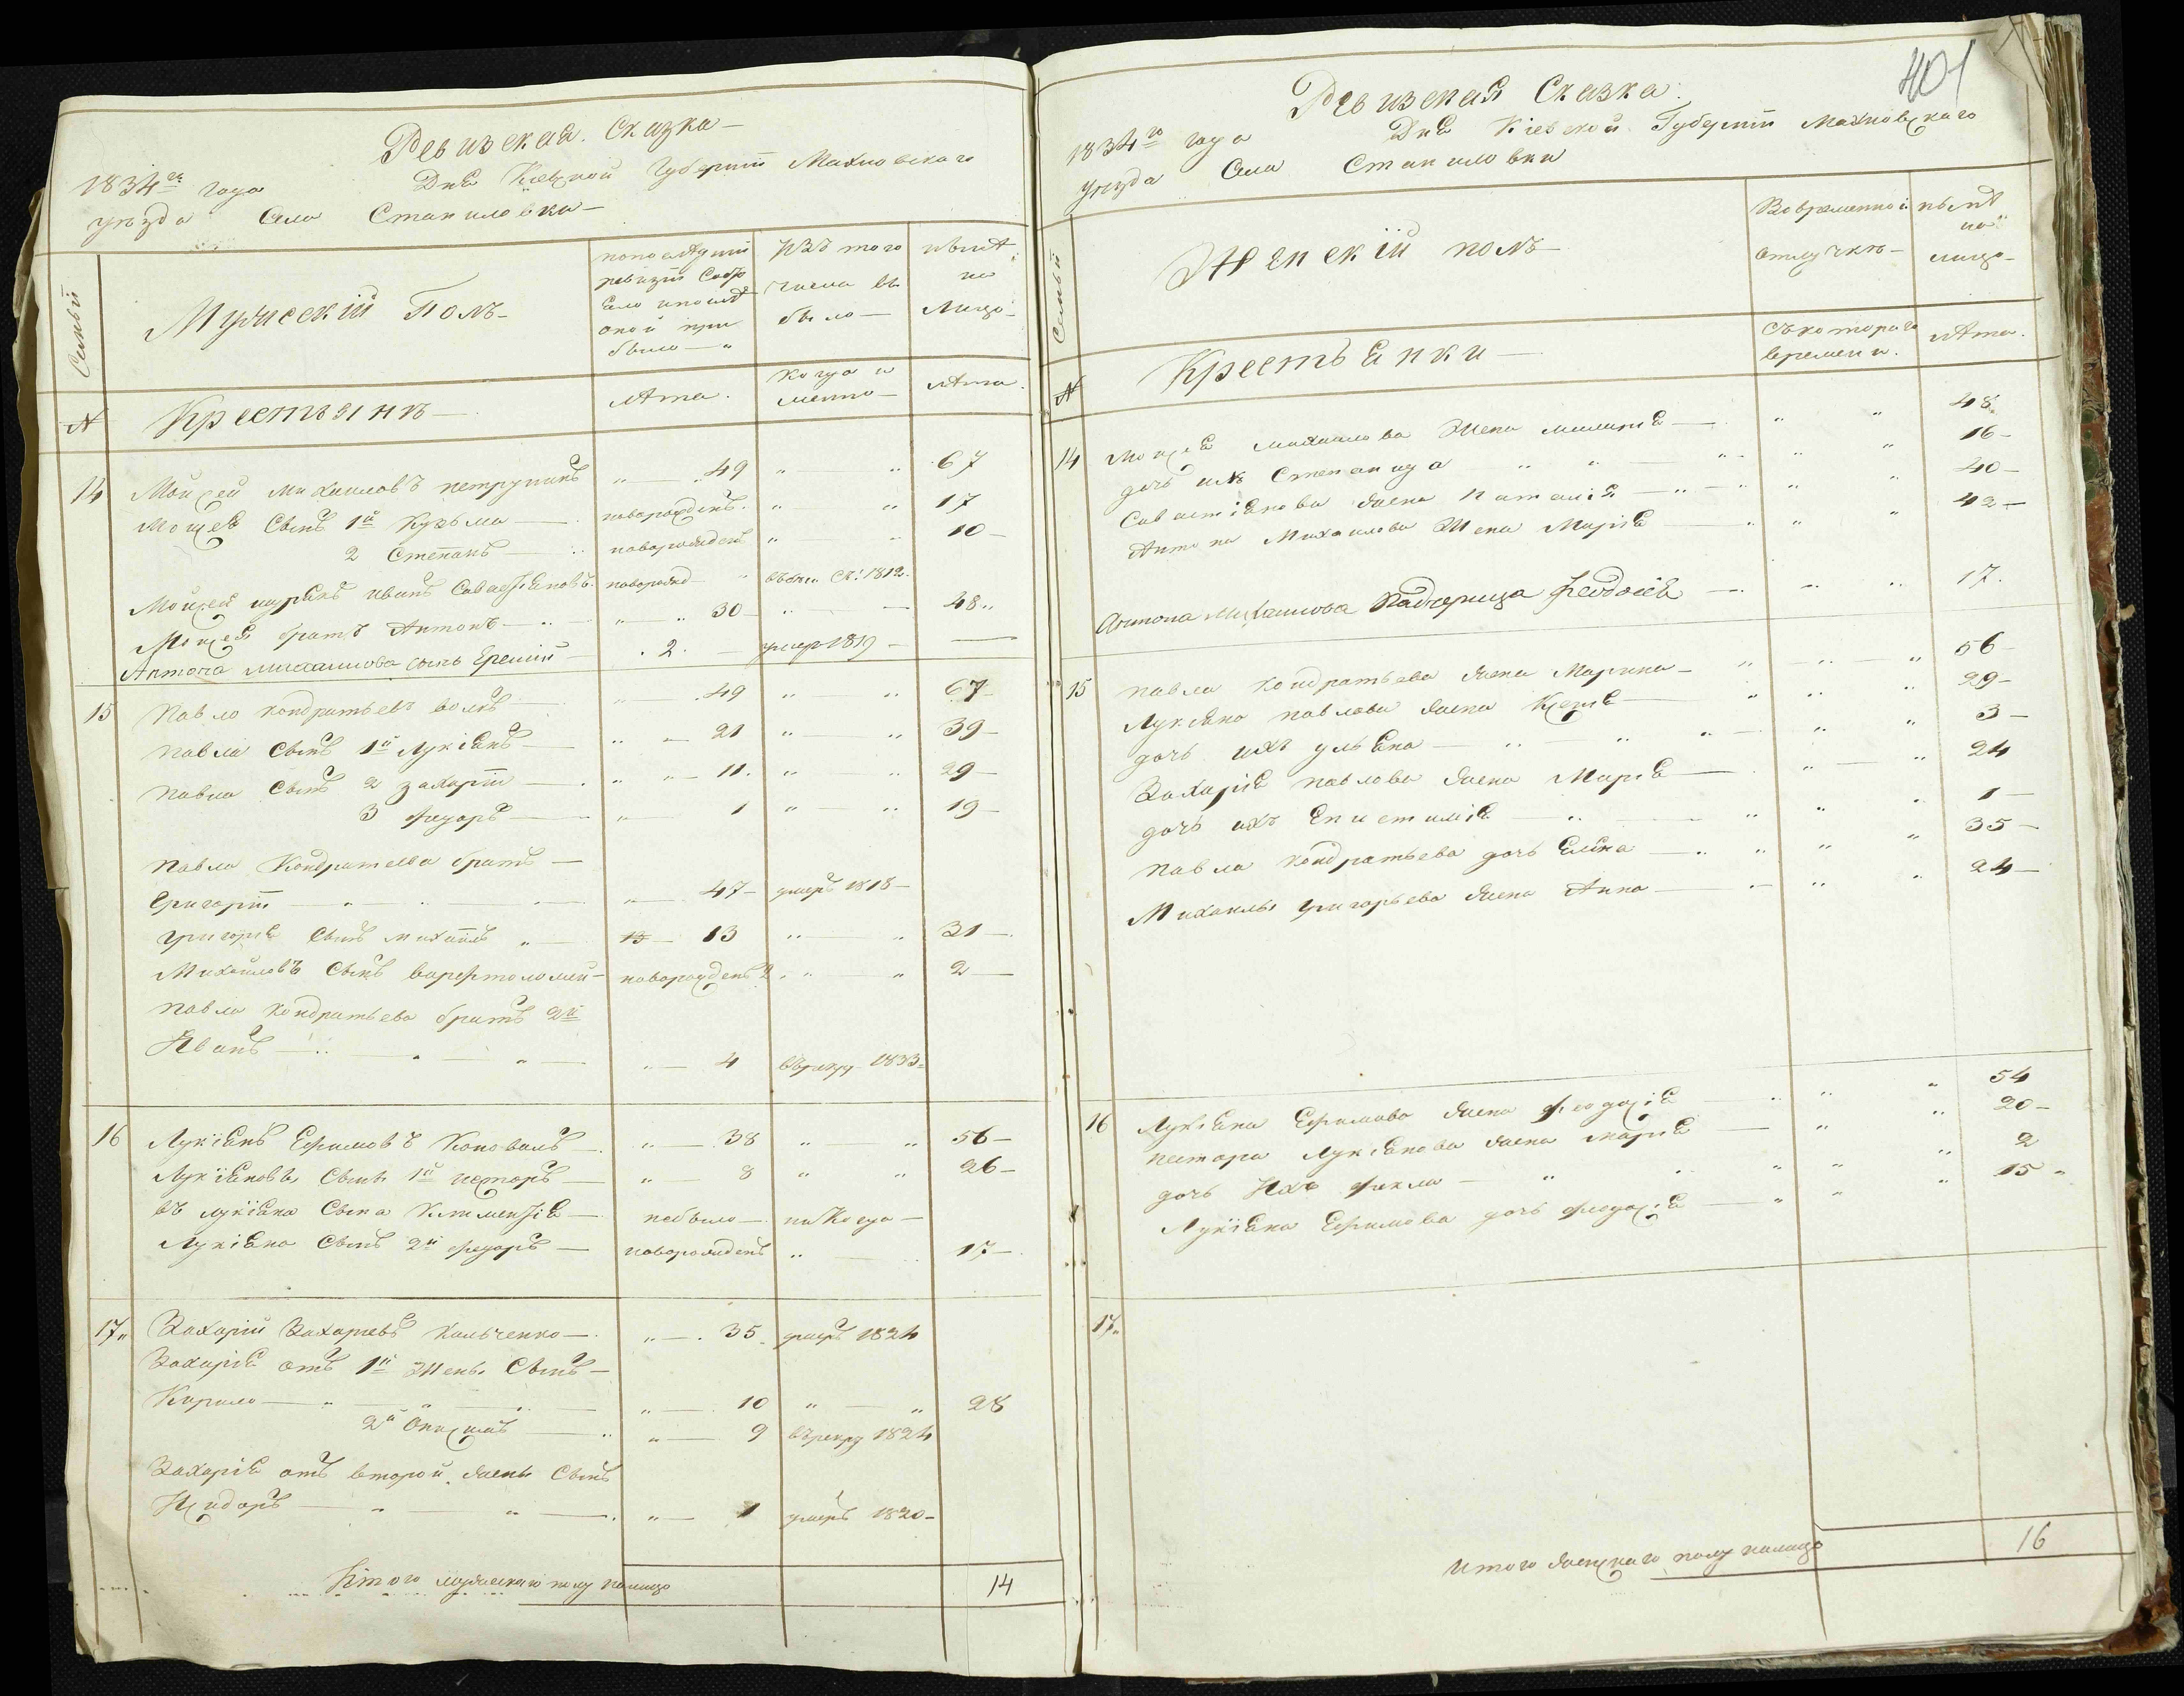 Ревизская Сказка
1834го года Дня Кіевской Губерніи Махновскаго
уезда Села Станиловки
Семьи
Мужескій Полъ
по последней ревизіи состояло и после оной прибыло
Изъ того числа выбыло
ныне на лицо
№ Крестьянъ
лета
когда именно
лета
14 Мойсей Михаиловъ петрушинъ 49 67
Мойсея Сынъ 1й Кузьма новорожденъ 17
2 Степанъ новорожденъ 10
Мойсея шуринъ иванъ Савастіановъ новорожд 1812
Мойсея братъ Антонъ 30 48
Антона михаилова сынъ Еремій 2 умер 1819
15 Павло кондратьевъ волкъ 49 67
Павла Сынъ 1й Лукіянъ 21 39
Павла Сынъ 2 захарій 11 29
3 Фидоръ 1 19
Павла Кондратьева братъ
Григорій 47 умеръ 1818
Григорія Сынъ михаилъ 13 13 31
Михаиловъ Сынъ варфтоломей новорожденъ 2
Павла кондратьева братъ 2й
Иванъ 4 въ рекру 1833
16 Лукіянъ Ефимовъ Коновалъ 38 56
Лукіяновъ Сынъ 1й несторъ 8 26
въ лукіяна Сына Климентія небыло никогда
Лукіяна Сынъ 2й федоръ новорожденъ 17
17 Захарій Захаріевъ Кальченко 35 умеръ 1824
Захарія отъ 1й жены Сынъ
Кирило 10 28
2й Онисимъ 9 въ рекру 1824
Захарія отъ второй жены Сынъ
Исидоръ 1 умеръ 1820
Итого мужескаго полу налицо 14
401
Ревизская Сказка
1834го года Дня Кіевской Губерніи Махновскаго
уезда Села Станиловки
Семьи
Женскій полъ
Во временной отлучке
ныне на лицо
№ Крестьянки
съ котораго времени
лета
14 Мойсея михаилова Жена миланія 48
дочь ихъ Степанида 16
Савастіянова жена Наталія 40
Антона Михаилова Жена Марія 42
Антона Михаилова Падчерица Феодосія 17
15 Павла кондратьева жена Марина 56
Лукіяна павлова жена Ксенія 29
дочь ихъ ульяна 3
Захарія павлова жена Марія 24
дочь ихъ Епистимія 1
Павла кондратьева дочь Елена 35
Михаилы григорьева жена Анна 24
16 Лукіяна Ефимова жена феодосія 54
нестора Лукіянова жена марія 20
дочь Ихъ фекла 2
Лукіяна Ефимова дочь феодосія 15
17
Итого женскаго полу налицо 16